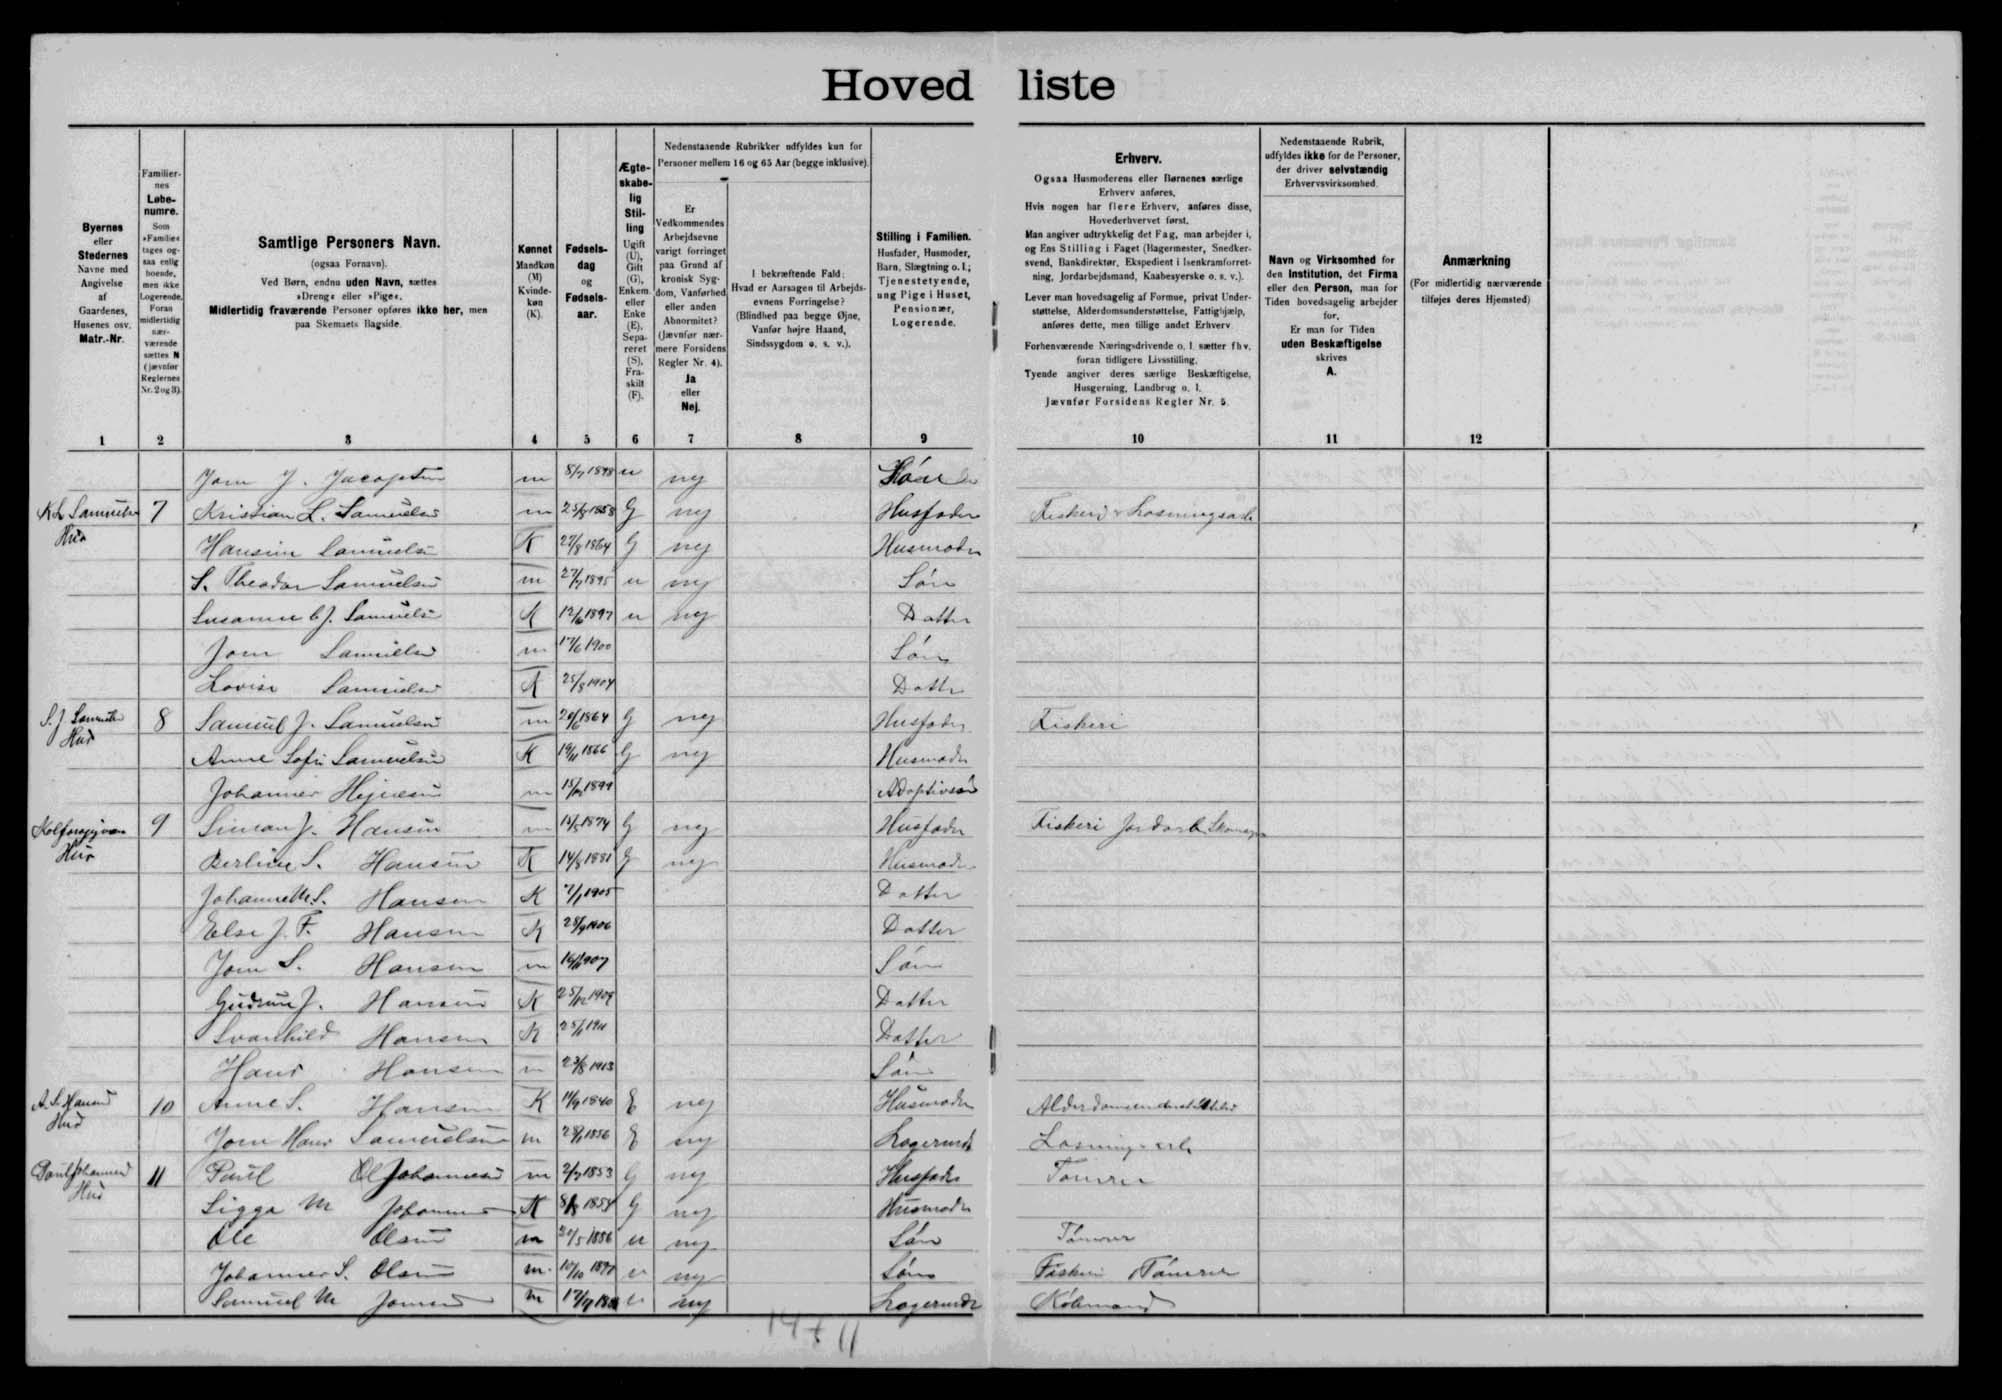 Hovedliste
Byernes
eller
Stedernes
Navne med
Angivelse
af
Gaardenes,
Husenes osv.
Matr.-Nr.
Familier-
nes
Løbe-
numre.
Som
»Familie«
tages og-
saa enlig
boende,
men ikke
Logerende.
Foran
midlertidig
nær-
værende
sættes N
(jævnfør
Reglernes
Nr. 2 og 3).
Samtlige Personers Navn.
(ogsaa Fornavn).
Ved Børn, endnu uden Navn, sættes
»Dreng« eller »Pige«.
Midlertidig fraværende Personer opføres ikke her, men
paa Skemaets Bagside.
Kønnet
Mandkøn
(M)
Kvinde-
køn
(K).
Fødsels-
dag
og
Fødsels-
aar.
Ægte-
skabe-
lig
Stil-
ling
Ugift
(U),
Gift
(G),
Enkem.
eller
Enke
(E),
Sepa-
reret
(S),
Fra-
skilt
(F).
Nedenstaaende Rubrikker udfyldes kun for
Personer mellem 16 og 65 Aar (begge inklusive).
Er
Vedkommendes
Arbejdsevne
varigt forringet
paa Grund af
kronisk Syg-
dom, Vanførhed
eller anden
Abnormitet?
(Jævnfør nær-
mere Forsidens
Regler Nr. 4).
Ja
eller
Nej.
I bekræftende Fald:
Hvad er Aarsagen til Arbejds-
evnens Forringelse?
(Blindhed paa begge Øjne,
Vanfør højre Haand,
Sindssygdom o. s. v.).
Stilling i Familien.
Husfader, Husmoder,
Barn, Slægtning o. l.;
Tjenestetyende,
ung Pige i Huset,
Pensionær,
Logerende.
Erhverv.
Ogsaa Husmoderens eller Børnenes særlige
Erhverv anføres,
Hvis nogen har flere Erhverv, anføres disse,
Hovederhvervet først.
Man angiver udtrykkelig det Fag, man arbejder i,
og Ens Stilling i Faget (Bagermester, Snedker-
svend, Bankdirektør, Ekspedient i Isenkramforret-
ning, Jordarbejdsmand, Kaabesyerske o. s. v.).
Lever man hovedsagelig af Formue, privat Under-
støttelse, Alderdomsunderstøttelse, Fattighjælp,
anføres dette, men tillige andet Erhverv.
Forhenværende Næringsdrivende o. l. sætter fhv.
foran tidligere Livsstilling.
Tyende angiver deres særlige Beskæftigelse,
Husgerning, Landbrug o. l.
Jævnfør Forsidens Regler Nr. 5.
Nedenstaaende Rubrik,
udfyldes ikke for de Personer,
der driver selvstændig
Erhvervsvirksomhed.
Navn og Virksomhed for
den Institution, det Firma
eller den Person, man for
Tiden hovedsagelig arbejder
for.
Er man for Tiden
uden Beskæftigelse
skrives
A.
Anmærkning
(For midlertidig nærværende
tilføjes deres Hjemsted)
1 2 3 4 5 6 7 8 9 10 11 12
J. Jacobsen m 1898 u nej Søn
K. L. Samuelsen 7 Kristian L. Samuelsen m 1858 G nej Husfader Fiskeri
Hus
Hansine Samuelsen K 27/8 1864 G nej Husmoder
S. Theodor Samuelsen m 27/7 1895 u nej Søn
Susanne Samuelsen K 1897 u nej Datter
Samuelsen m 17/6 1900 Søn
Lovise Samuelsen K 25/8 1904 Datter
S. J. Samuelsen 8 Samuel J. Samuelsen m 20/6 1864 G nej Husfader Fiskeri
Hus
Anne Sofie Samuelsen K 1866 G nej Husmoder
Johannes m 1899 Adoptivsøn
9 Simon J. Hansen m 1874 G nej Husfader Fiskeri
Hus
Berline S. Hansen K 14/8 1881 G nej Husmoder
Johanne M. S. Hansen K 1905 Datter
Else J. F. Hansen K 1906 Datter
S. Hansen m 1907 Søn
Gudrun J. Hansen K Datter
Svanhild Hansen K 1911 Datter
Hans Hansen m 23/8 1913 Søn
A. S. Hansen 10 Anne S. Hansen K 1840 E nej Husmoder
Hus
Hans Samuelsen m 1856 E nej Logerende
11 Poul Johannesen m 1853 G nej Husfader Tømrer
Hus
Sigga M K G nej Husmoder
Ole Olsen m 1886 u nej Søn Tømrer
Johannes S. Olsen m 10/10 u nej Søn Fiskeri Tømrer
Samuel M m nej Logerende Købmand
14 + 11